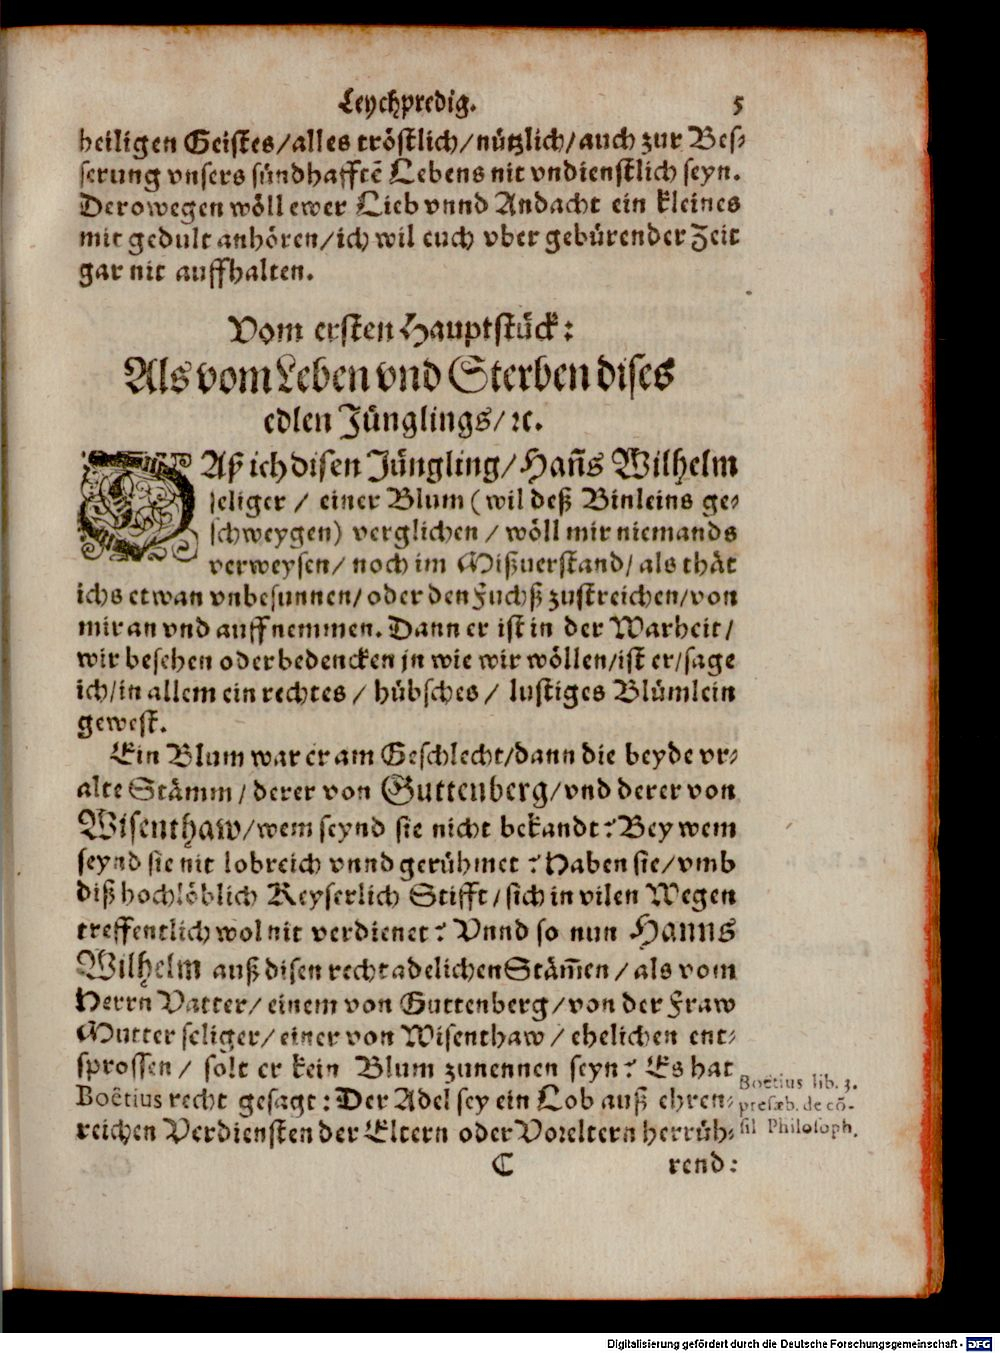 Leychpredig. 5
heiligen Geistes/alles tröstlich/nützlich/auch zur Bes-
serung vnsers sündhafftẽ Lebens nit vndienstlich seyn.
Derowegen wöll ewer Lieb vnnd Andacht ein kleines
mit gedult anhören/ich wil euch vber gebürender Zeit
gar nit auffhalten.
Vom ersten Hauptstück:
Als vom Leben vnd Sterben dises
edlen Jünglings/ꝛc.
DAß ich disen Jüngling/Hañs Wilhelm
seliger / einer Blum (wil deß Binleins ge-
schweygen) verglichen / wöll mir niemands
verweysen/ noch im Mißuerstand/ als thät
ichs etwan vnbesunnen/oder den Fuchß zustreichen/von
mir an vnd auffnemmen. Dann er ist in der Warheit/
wir besehen oder bedencken jn wie wir wöllen/ist er/sage
ich/in allem ein rechtes / hübsches / lustiges Blümlein
gewest.
Ein Blum war er am Geschlecht/dann die beyde vr-
alte Stämm/ derer von Guttenberg/vnd derer von
Wisenthaw/wem seynd sie nicht bekandt? Bey wem
seynd sie nit lobreich vnnd gerühmet? Haben sie/vmb
diß hochlöblich Keyserlich Stifft/sich in vilen Wegen
treffentlich wol nit verdienet? Vnnd so nun Hanns
Wilhelm auß disen recht adelichen Stäm̃en / als vom
Herrn Vatter/ einem von Guttenberg/von der Fraw
Mutter seliger/einer von Wisenthaw / ehelichen ent-
sprossen / solt er kein Blum zunennen seyn? Es hat
Boëtius recht gesagt: Der Adel sey ein Lob auß ehren-
reichen Verdiensten der Eltern oder Voreltern herrüh-
Boëtius lib. 3.
presæb. de cõ-
sil Philosoph.
C rend:
Digitalisierung gefördert durch die Deutsche Forschungsgemeinschaft - DFG